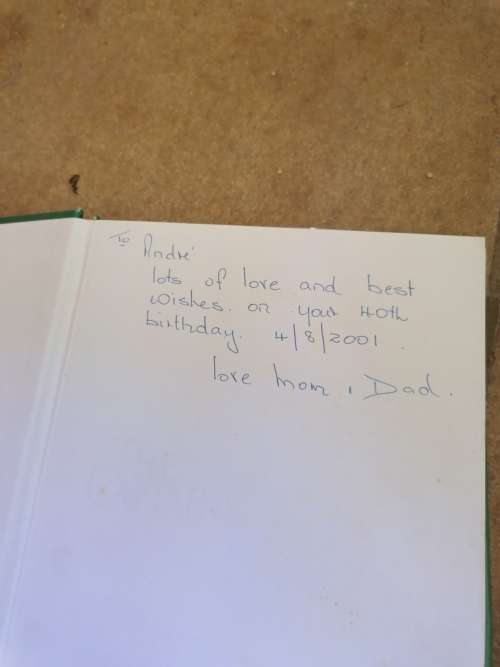 To André
lots of love and best
wishes. on your 40th
birthday. 4/8/2001.
love Mom, Dad.